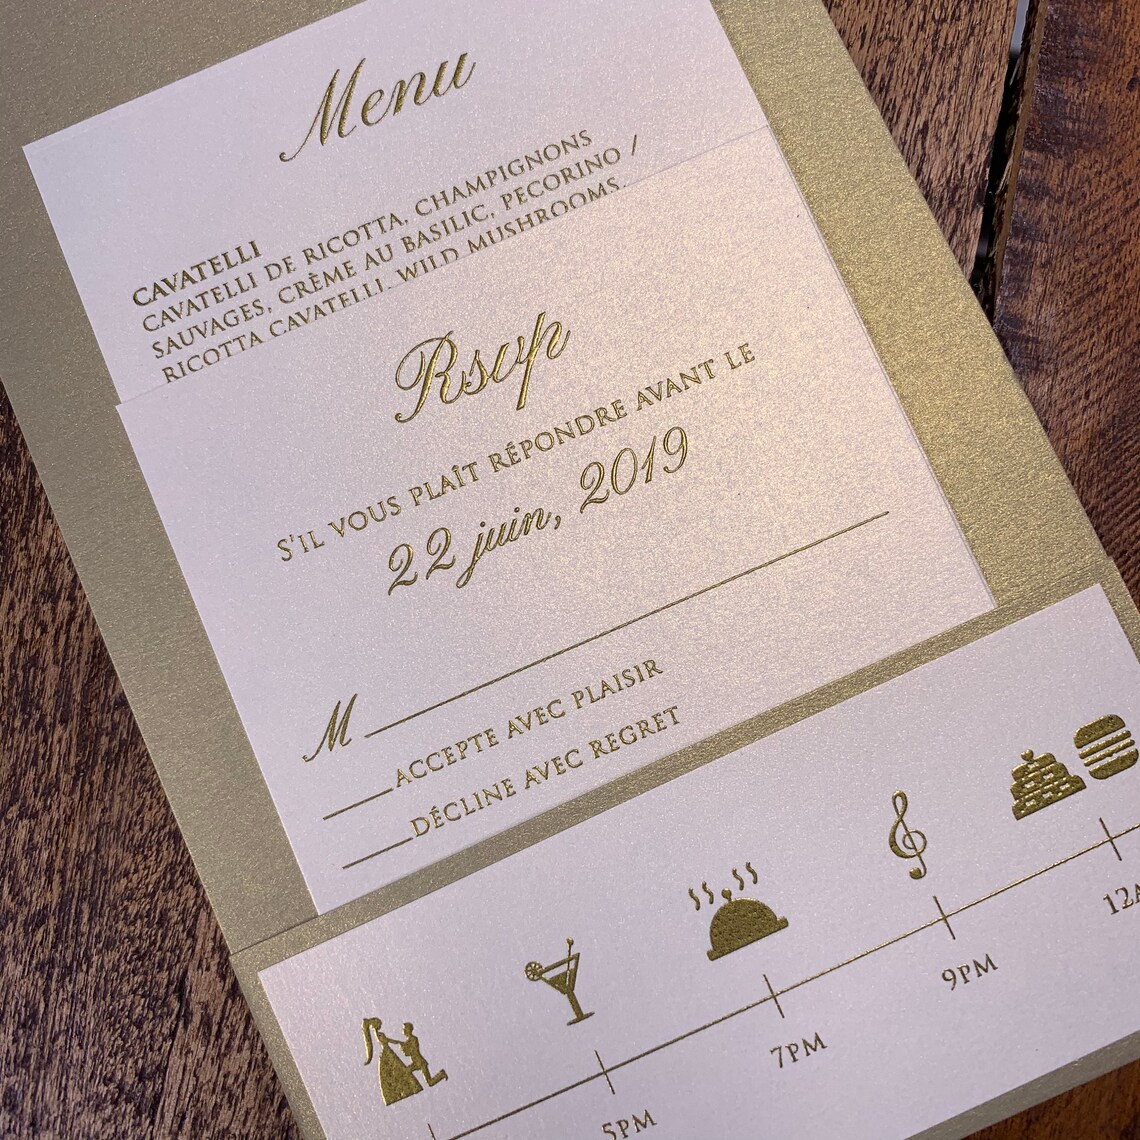 Menu
CAVATELLI
CAVATELLI DE RICOTTA, CHAMPIGNONS
SAUVAGES, CRÈME AU BASILIC, PECORINO /
RICOTTA CAVATELLI, WILD MUSHROOMS,
Rsvp
S'IL VOUS PLAÎT RÉPONDRE AVANT LE
22 juin, 2019
M
ACCEPTE AVEC PLAISIR
DÉCLINE AVEC REGRET
5PM
7PM
9PM